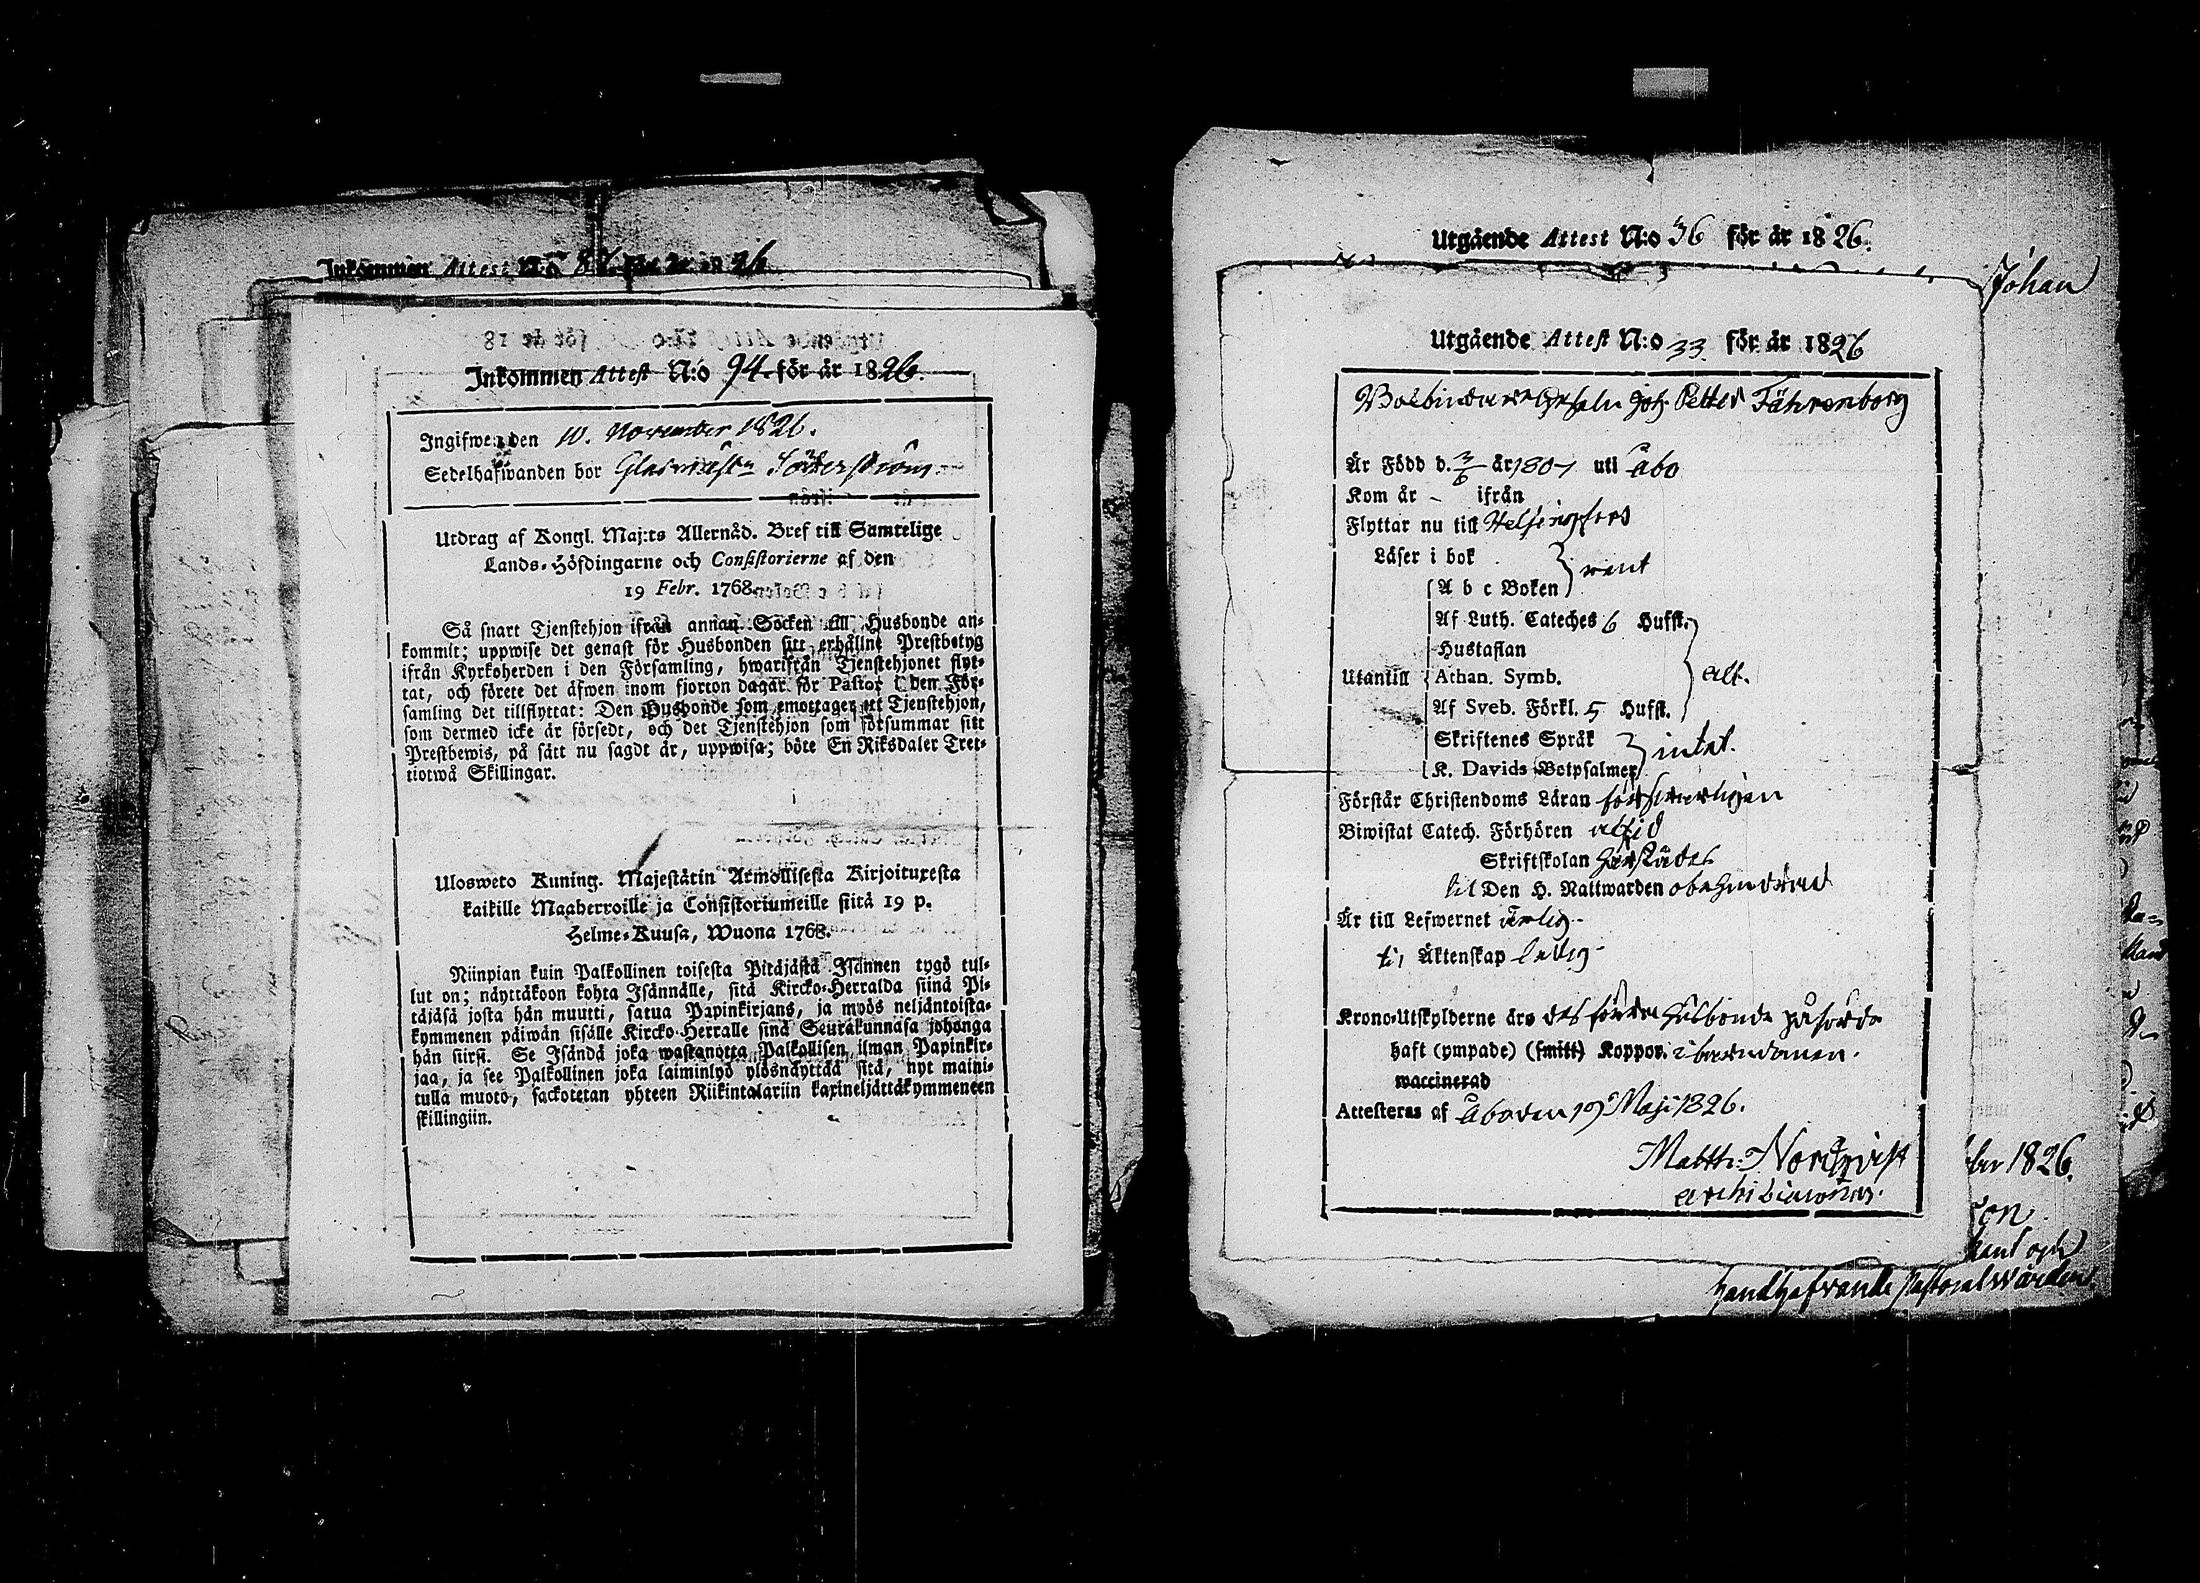 Inkommen Attest N:o 87 för år 1826
Inkommen Attest N:o 94. för år 1826.
Ingifwen den 10. November 1826.
Sedelhafwanden bor Glasmäst. Söderström.
Utdrag af Kongl. Maj:ts Allernåd. Bref till Samtelige
Lands-Höfdingarne och Consistorierne af den
19 Febr. 1768.
Så snart Tjenstehjon ifrån annan Socken till Husbonde an-
kommit; uppwise det genast för Husbonden sitt erhållne Prestbetyg
ifrån Kyrkoherden i den Församling, hwarifrån Tjenstehjonet flyt-
tat, och förete det äfwen inom fjorton dagar för Pastor i den För-
samling det tillflyttat: Den Husbonde som emottager ett Tjenstehjon,
som dermed icke är försedt, och det Tjenstehjon som försummar sitt
Prestbewis, på sätt nu sagdt är, uppwisa; böte En Riksdaler Tret-
tiotwå Skillingar.
Ulosweto Kuning. Majestätin Armollisesta Kirjoituxesta
kaikille Maaherroille ja Consistoriumeille siitä 19 p.
Helme-Kuusa, Wuona 1768.
Niinpian kuin Palkollinen toisesta Pitäjästä Isännen tygö tul-
lut on; näyttäkoon kohta Isännälle, sitä Kircko-Herralda siinä Pi-
täjäsä josta hän muutti, saatua Papinkirjans, ja myös neljäntoista-
kymmenen päiwän sisälle Kircko-Herralle siinä Seurakunnasa johonga
hän siirsi. Se Isändä joka wastanotta Palkollisen ilman Papinkir-
jaa, ja see Palkollinen joka laiminlyö ylösnäyttää sitä, nyt maini-
tulla muoto, sackotetan yhteen Riikintalariin kaxineljättäkymmeneen
skillingiin.
Utgående Attest N:o 36 för år 1826.
Johan
Utgående Attest N:o 33 för år 1826
Bokbindare Gesäln Joh. Petter Fährenborg
Är Född d. 3/6 år 1807 uti Åbo
Kom år - ifrån
Flyttar nu till Helsingfors
Läser i bok
A b c Boken } rent
Af Luth. Cateches 6 Hufst.
Hustaflan
Utantill Athan. Symb. } alt.
Af Sveb. Förkl. 5 Hufst.
Skriftenes Språk
K. Davids Botpsalmer } intet.
Förstår Christendoms Läran försvarligen
Biwistat Catech. Förhören altid
Skriftskolan härstädes
til Den H. Nattwarden obehindrad
Är till Lefwernet ärlig.
til Äktenskap ledig.
Krono-Utskylderne äro des förra Husbonde påförde
haft (ympade) (smitt) Koppor. i barndomen.
waccinerad
Attesteras af Åbo den 19 Maji 1826.
Matth: Nordqvist
Archidiaconus.
ber 1826.
son
kant och
handhafvande Pastoralvården